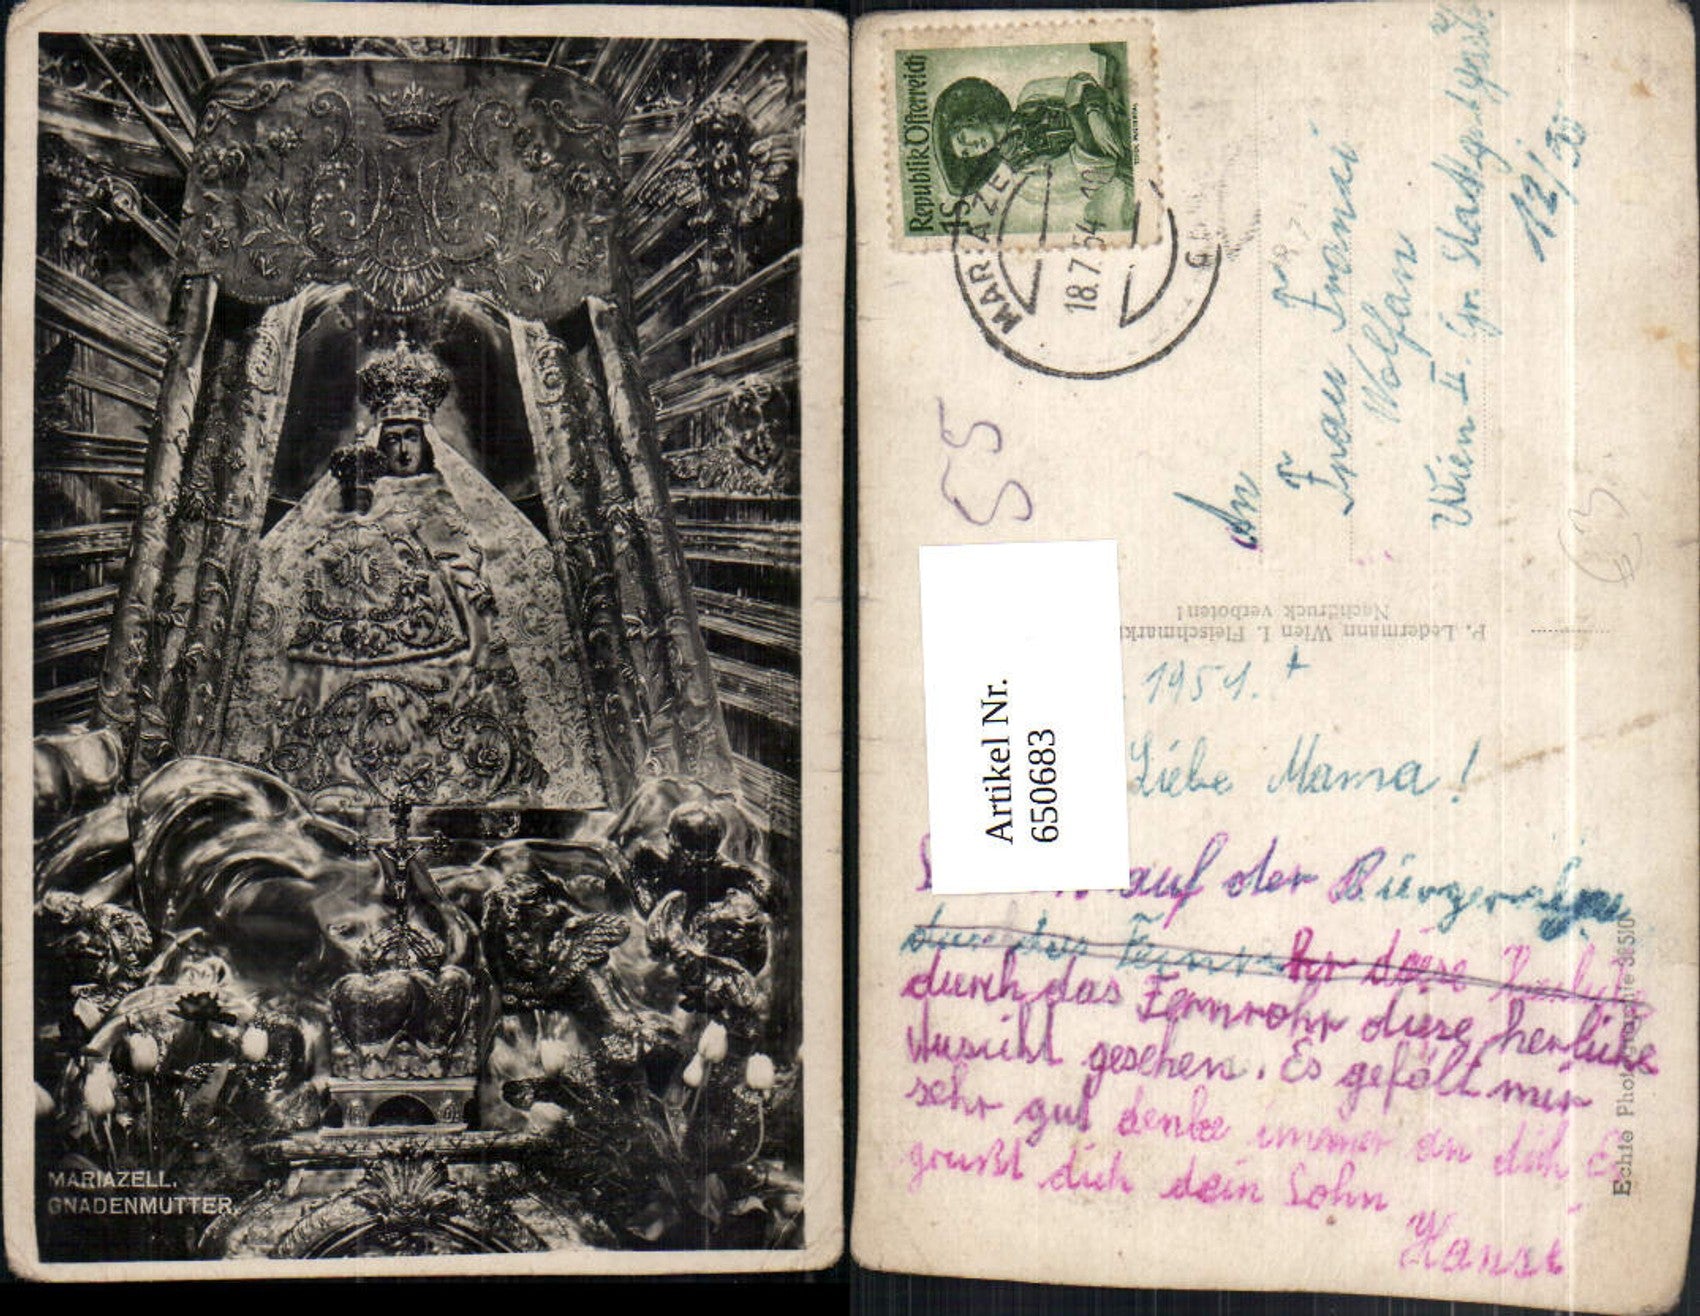 MARIAZELL.
GNADENMUTTER.
Republik Österreich
1S
MARIAZELL
18.7.54
55
An
Frau Franzi
Wolfan
Wien II. Gr. Stadtgutgasse
12/30
P. Ledermann Wien I. Fleischmark
Nachdruck verboten!
Artikel Nr.
650683
1954. +
Liebe Mama!
auf der Bürger
durch das Fernrohr diese
durch das Fernrohr diese herliche
Aussicht gesehen. Es gefält mir
sehr gut denke immer an dich Es
grüßt dich dein Sohn
Hansi
Echte Photographie 38510